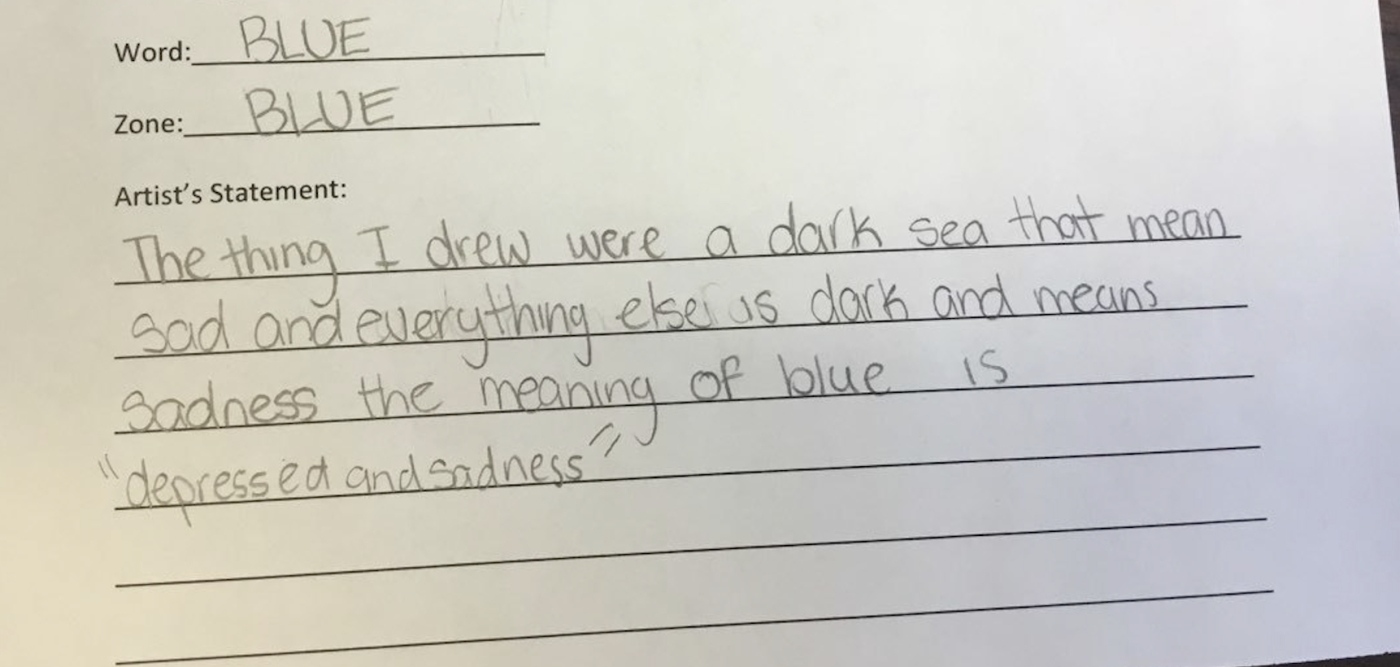 Word: BLUE
Zone: BLUE
Artist's Statement:
The thing I drew were a dark sea that mean
sad and everything else is dark and means
sadness the meaning of blue is
"depressed and sadness"